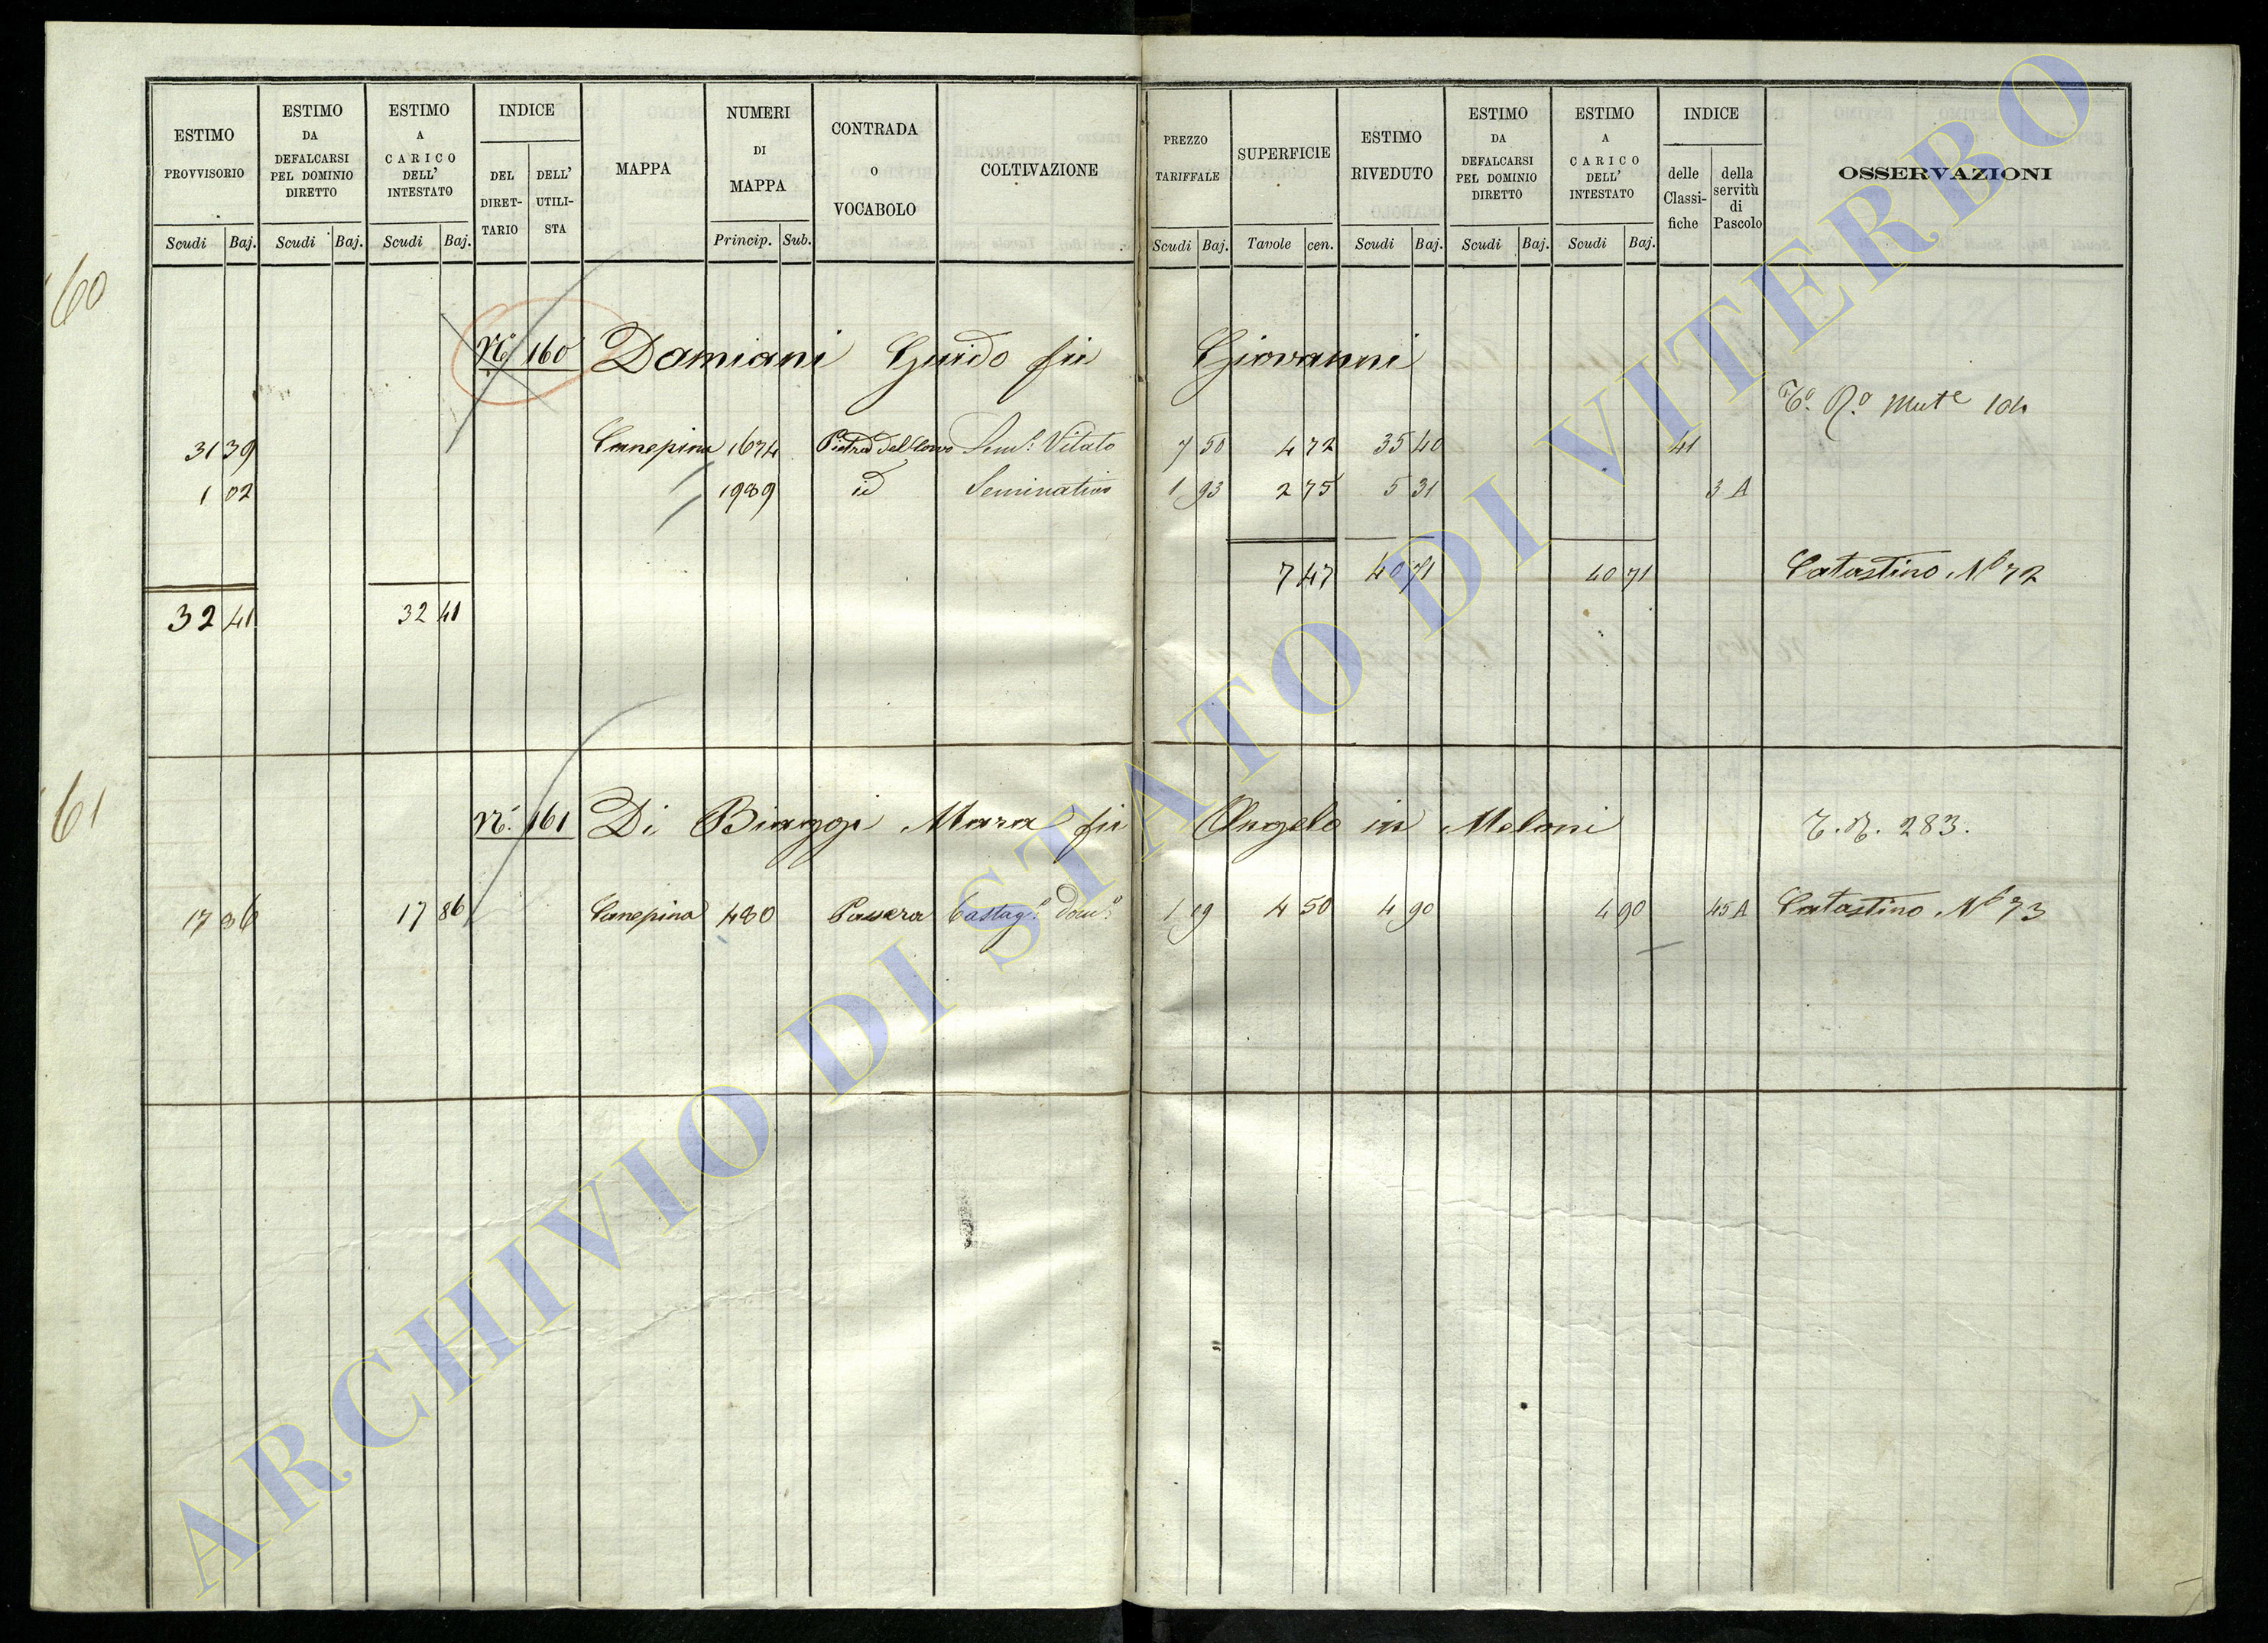 ESTIMO PROVVISORIO Scudi Baj.
ESTIMO DA DEFALCARSI PEL DOMINIO DIRETTO Scudi Baj.
ESTIMO A CARICO DELL' INTESTATO Scudi Baj.
INDICE DEL DIRET- TARIO DELL' UTILI- STA
MAPPA
NUMERI DI MAPPA Princip. Sub.
CONTRADA o VOCABOLO
COLTIVAZIONE
PREZZO TARIFFALE Scudi Baj.
SUPERFICIE Tavole cen.
ESTIMO RIVEDUTO Scudi Baj.
ESTIMO DA DEFALCARSI PEL DOMINIO DIRETTO Scudi Baj.
ESTIMO A CARICO DELL' INTESTATO Scudi Baj.
INDICE delle Classi- fiche della servitù di Pascolo
OSSERVAZIONI
160
N.° 160 Damiani Guido fu Giovanni
31 39 Canepina 1674 Pietra del Corvo Sem.° Vitato 7 50 4 72 35 40 41
1 02 1989 id Seminativo 1 93 2 75 5 31 3 A
7 47 40 71 40 71 Catastino N° 72
32 41 32 41
161
N.° 161 Di Biaggi Mara fu Angelo in Meloni T. N. 283.
17 86 17 86 Canepina 480 Passera Castag.° dom.° 1 09 4 50 4 90 4 90 45 A Catastino N° 73
ARCHIVIO DI STATO DI VITERBO